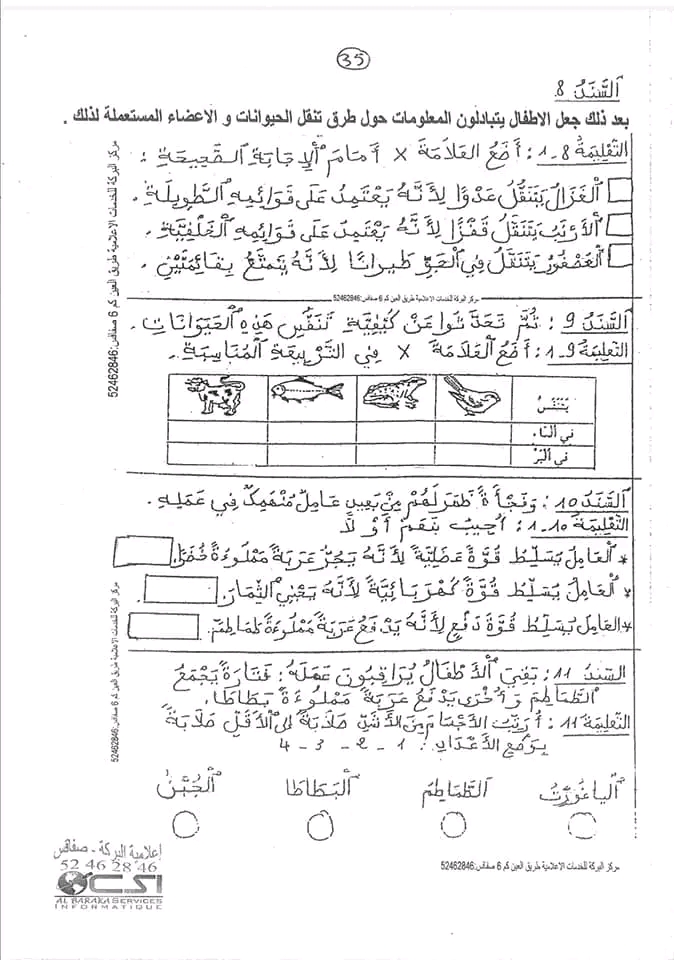 35
السَّنَدُ 8
بعد ذلك جعل الاطفال يتبادلون المعلومات حول طرق تنقل الحيوانات و الاعضاء المستعملة لذلك .
التَّعْلِيمَةُ 8-1 : أَضَعُ العَلَامَةَ × أَمَامَ الْإِجَابَةِ الصَّحِيحَةِ :
الْغَزَالُ يَتَنَقَّلُ عَدْوًا لِأَنَّهُ يَعْتَمِدُ عَلَى قَوَائِمِهِ الطَّوِيلَةِ .
الْأَرْنَبُ يَتَنَقَّلُ قَفْزًا لِأَنَّهُ يَعْتَمِدُ عَلَى قَوَائِمِهِ الْخَلْفِيَّةِ .
الْعُصْفُورُ يَتَنَقَّلُ فِي الْجَوِّ طَيَرَانًا لِأَنَّهُ يَتَمَتَّعُ بِقَائِمَتَيْنِ .
مركز البركة للخدمات الاعلامية طريق العين كم 6 صفاقس:52462846
السَّنَدُ 9 : ثُمَّ تَحَدَّثُوا عَنْ كَيْفِيَّةِ تَنَفُّسِ هَذِهِ الْحَيَوَانَاتِ .
التَّعْلِيمَةُ 9-1 : أَضَعُ الْعَلَامَةَ × فِي التَّرْبِيعَةِ الْمُنَاسِبَةِ .
يَتَنَفَّسُ
فِي الْمَاءِ
فِي الْبَرِّ
السَّنَدُ 10 : وَفَجْأَةً ظَهَرَ لَهُمْ مِنْ بَعِيدٍ عَامِلٌ مُنْهَمِكٌ فِي عَمَلِهِ .
التَّعْلِيمَةُ 10-1 : أُجِيبُ بِنَعَمْ أَوْ لَا
* الْعَامِلُ يُسَلِّطُ قُوَّةً عَضَلِيَّةً لِأَنَّهُ يَجُرُّ عَرَبَةً مَمْلُوءَةً خُضَرًا.
* الْعَامِلُ يُسَلِّطُ قُوَّةً كَهْرَبَائِيَّةً لِأَنَّهُ يَجْنِي الثِّمَارَ.
* العَامِلُ يُسَلِّطُ قُوَّةَ دَفْعٍ لِأَنَّهُ يَدْفَعُ عَرَبَةً مَمْلُوءَةً طَمَاطِمَ.
السَّنَدُ 11 : بَقِيَ الْأَطْفَالُ يُرَاقِبُونَ عَمَلَهُ : فَتَارَةً يَجْمَعُ
الطَّمَاطِمَ وَ أُخْرَى يَدْفَعُ عَرَبَةً مَمْلُوءَةً بَطَاطَا.
التَّعْلِيمَةُ 11 : أُرَتِّبُ الْأَجْسَامَ مِنَ الْأَشَدِّ صَلَابَةً إِلَى الْأَقَلِّ صَلَابَةً
بِوَضْعِ الْأَعْدَادِ : 1 - 2 - 3 - 4
الْيَاغُورْتُ
الطَّمَاطِمُ
الْبَطَاطَا
الْجُبْنُ
مركز البركة للخدمات الاعلامية طريق العين كم 6 صفاقس:52462846
مركز البركة للخدمات الاعلامية طريق العين كم 6 صفاقس:52462846
مركز البركة للخدمات الاعلامية طريق العين كم 6 صفاقس:52462846
مركز البركة للخدمات الاعلامية طريق العين كم 6 صفاقس:52462846
إعلامية البركة - صفاقس
52 46 28 46
CSI
AL BARAKA SERVICES
INFORMATIQUE